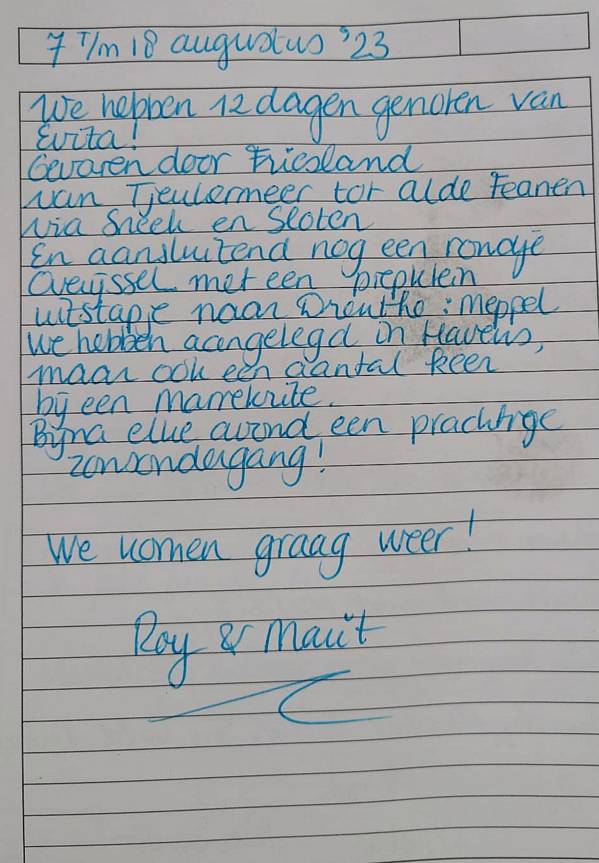 7 T/m 18 augustus '23
We hebben 12 dagen genoten van
Evita!
Gevaren door Friesland
van Tjeukermeer tot alde Feanen
via Sneek en Sloten
En aansluitend nog een rondje
Overijssel met een piepklein
uitstapje naar Drenthe: Meppel
We hebben aangelegd in Havens,
maar ook een aantal keer
bij een Marrekrite.
Bijna elke avond een prachtige
zonsondergang!
We komen graag weer!
Roy &